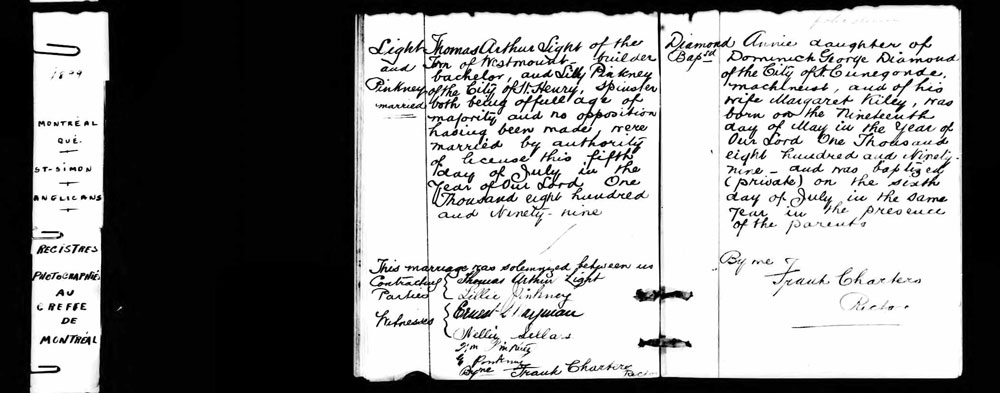 1899
MONTRÉAL
QUÉ.
ST-SIMON
ANGLICANS
REGISTRES
PHOTOGRAPHIÉS
AU
GREFFE
DE
MONTRÉAL
Light
and
Pinkney
married
Thomas Arthur Light of the
Town of Westmount - builder
bachelor, and Lilly Pinkney
of the City of St. Henry, Spinster
both being of full age of
majority and no opposition
having been made were
married by authority
of license this fifth
day of July in the
Year of Our Lord One
Thousand eight hundred
and Ninety-nine
This marriage was solemnized between us
Contracting Parties
Thomas Arthur Light
Lillie Pinkney
Witnesses
Ernest
Nellie
By me Frank Charters Rector
Diamond
Bapsd
Annie daughter of
Dominick George Diamond
of the City of St. Cunegonde,
machinist, and of his
wife Margaret Kiley, was
born on the Nineteenth
day of May in the Year of
Our Lord One Thousand
eight hundred and Ninety-
nine - and was baptized
(private) on the sixth
day of July in the same
Year in the presence
of the parents
By me
Frank Charters
Rector